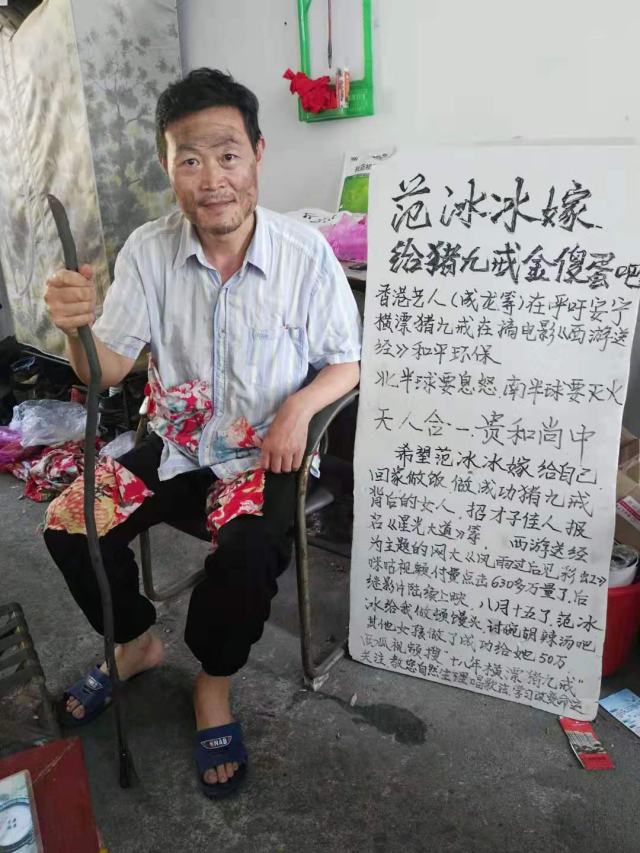 范冰冰嫁
给猪九戒金傻蛋吧
香港艺人(成龙等)在呼吁安宁
横漂猪九戒在搞电影《西游送
经》和平环保
北半球要息怒.南半球要灭火
天人合一.贵和尚中
希望范冰冰嫁给自己.
回家做饭.做成功猪九戒
背后的女人.招才子佳人报
名《星光大道》等 西游送经
为主题的网大《风雨过后见彩虹2》
咪咕视频付费点击630多万量了.后
继影片陆续上映.八月十五了.范冰
冰给我做顿馒头.讨碗胡辣汤吧
其他女孩做了成功给她50万
西瓜视频搜"十八年横漂猪九戒"
关注教您自然生理唱歌法学习
NAB